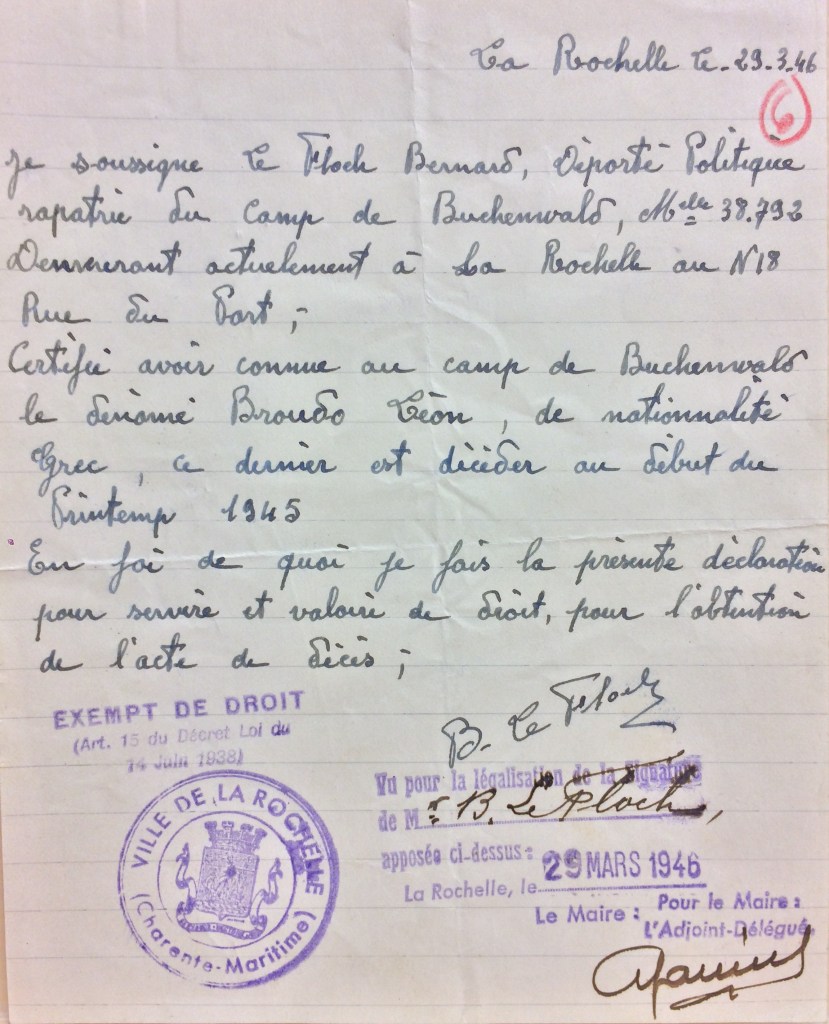 La Rochelle le. 29.3.46
6
je soussigne Le Floch Bernard, Déporté Politique
rapatrie du Camp de Buchenwald, Melle 38.792
Demeurant actuelement à La Rochelle au N 18
Rue du Port ;-
Certifie avoir connue au camp de Buchenwald
le dénomé Broudo Léon, de nationnalité
Grec, ce dernier est décèder au début du
Printemp 1945
En foi de quoi je fais la présente déclaration
pour servire et valoire de droit, pour l'obtintion
de l'acte de décès ;-
B. Le Floch
EXEMPT DE DROIT
(Art. 15 du Décret Loi du
14 Juin 1938)
Vu pour la légalisation de la Signature
de Mr B. Le Floch,
apposée ci-dessus :
La Rochelle, le 29 MARS 1946
Le Maire : Pour le Maire :
L'Adjoint-Délégué,
VILLE DE LA ROCHELLE
(Charente-Maritime)